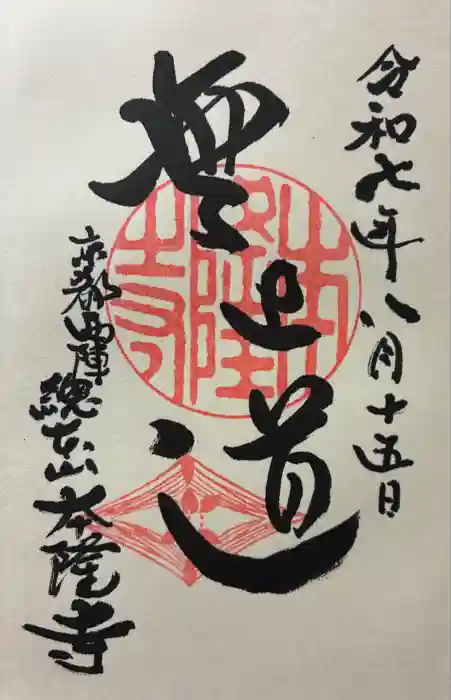 令和七年八月十五日
無上道
本隆寺
京都西陣
總本山本隆寺